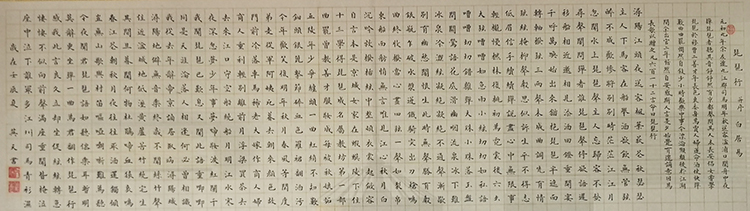 琵琶行 并序 白居易
元和九年余左遷九江郡司馬明年秋送客湓浦口聞舟中夜
彈琵琶者聽其音錚錚然有京都聲問其人本長安倡女嘗學
琵琶於穆曹二善才年長色衰委身為賈人婦遂命酒使快彈
數曲
長歌以贈之凡六百一十二言命曰琵琶行
潯陽江頭夜送客楓葉荻花秋瑟瑟
主人下馬客在船舉酒欲飲無管絃
醉不成歡慘將別別時茫茫江浸月
忽聞水上琵琶聲主人忘歸客不發
尋聲暗問彈者誰琵琶聲停欲語遲
移船相近邀相見添酒回燈重開宴
千呼萬喚始出來猶抱琵琶半遮面
轉軸撥絃三兩聲未成曲調先有情
絃絃掩抑聲聲思似訴生平不得志
低眉信手續續彈說盡心中無限事
輕攏慢撚抹復挑初為霓裳後六么
大絃嘈嘈如急雨小絃切切如私語
嘈嘈切切錯雜彈大珠小珠落玉盤
間關鶯語花底滑幽咽泉流冰下難
冰泉冷澀絃凝絕凝絕不通聲暫歇
別有幽愁闇恨生此時無聲勝有聲
銀瓶乍破水漿迸鐵騎突出刀槍鳴
曲終收撥當心畫四絃一聲如裂帛
東船西舫悄無言唯見江心秋月白
沉吟放撥插絃中整頓衣裳起斂容
自言本是京城女家在蝦蟆陵下住
十三學得琵琶成名屬教坊第一部
曲罷曾教善才服妝成每被秋娘妒
五陵年少爭纏頭一曲紅綃不知數
鈿頭銀篦擊節碎血色羅裙翻酒污
今年歡笑復明年秋月春風等閒度
弟走從軍阿姨死暮去朝來顏色故
門前冷落車馬稀老大嫁作商人婦
商人重利輕別離前月浮梁買茶去
去來江口守空船繞船明月江水寒
夜深忽夢少年事夢啼妝淚紅闌干
我聞琵琶已歎息又聞此語重唧唧
同是天涯淪落人相逢何必曾相識
我從去年辭帝京謫居臥病潯陽城
潯陽地僻無音樂終歲不聞絲竹聲
住近湓城地低濕黃蘆苦竹繞宅生
其間旦暮聞何物杜鵑啼血猿哀鳴
春江花朝秋月夜往往取酒還獨傾
豈無山歌與村笛嘔啞嘲哳難為聽
今夜聞君琵琶語如聽仙樂耳暫明
莫辭更坐彈一曲為君翻作琵琶行
感我此言良久立卻坐促絃絃轉急
悽悽不似向前聲滿座重聞皆掩泣
座中泣下誰最多江州司馬青衫濕